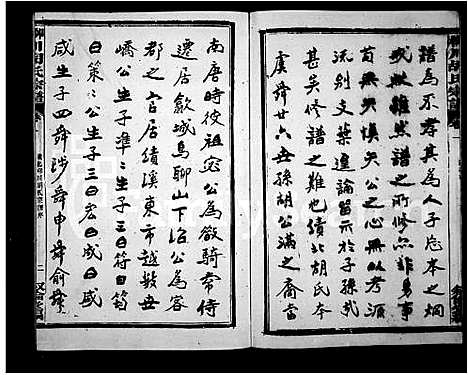 譜為不孝其為人子忘本之炯
戒哉雖然譜之所修亦易事
苟無其慎矣公之心無以考源
流別支葉遑論昭示於子孫哉
甚矣修譜之難也績北胡氏本
虞舜廿六世孫胡公滿之裔當
南唐時彼祖宓公為歙騎常侍
遷居歙城烏聊山下治公為容
郡之官居績溪東市越數世
嶠公生子準準公生子三曰符曰筠
曰策策公生子三曰宏曰咸曰盛
咸生子四舜陟舜申舜俞舜